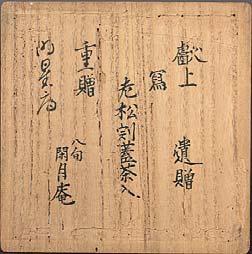 獻上　遺贈
寫
老松割蓋茶入
重贈
八旬
閑月庵